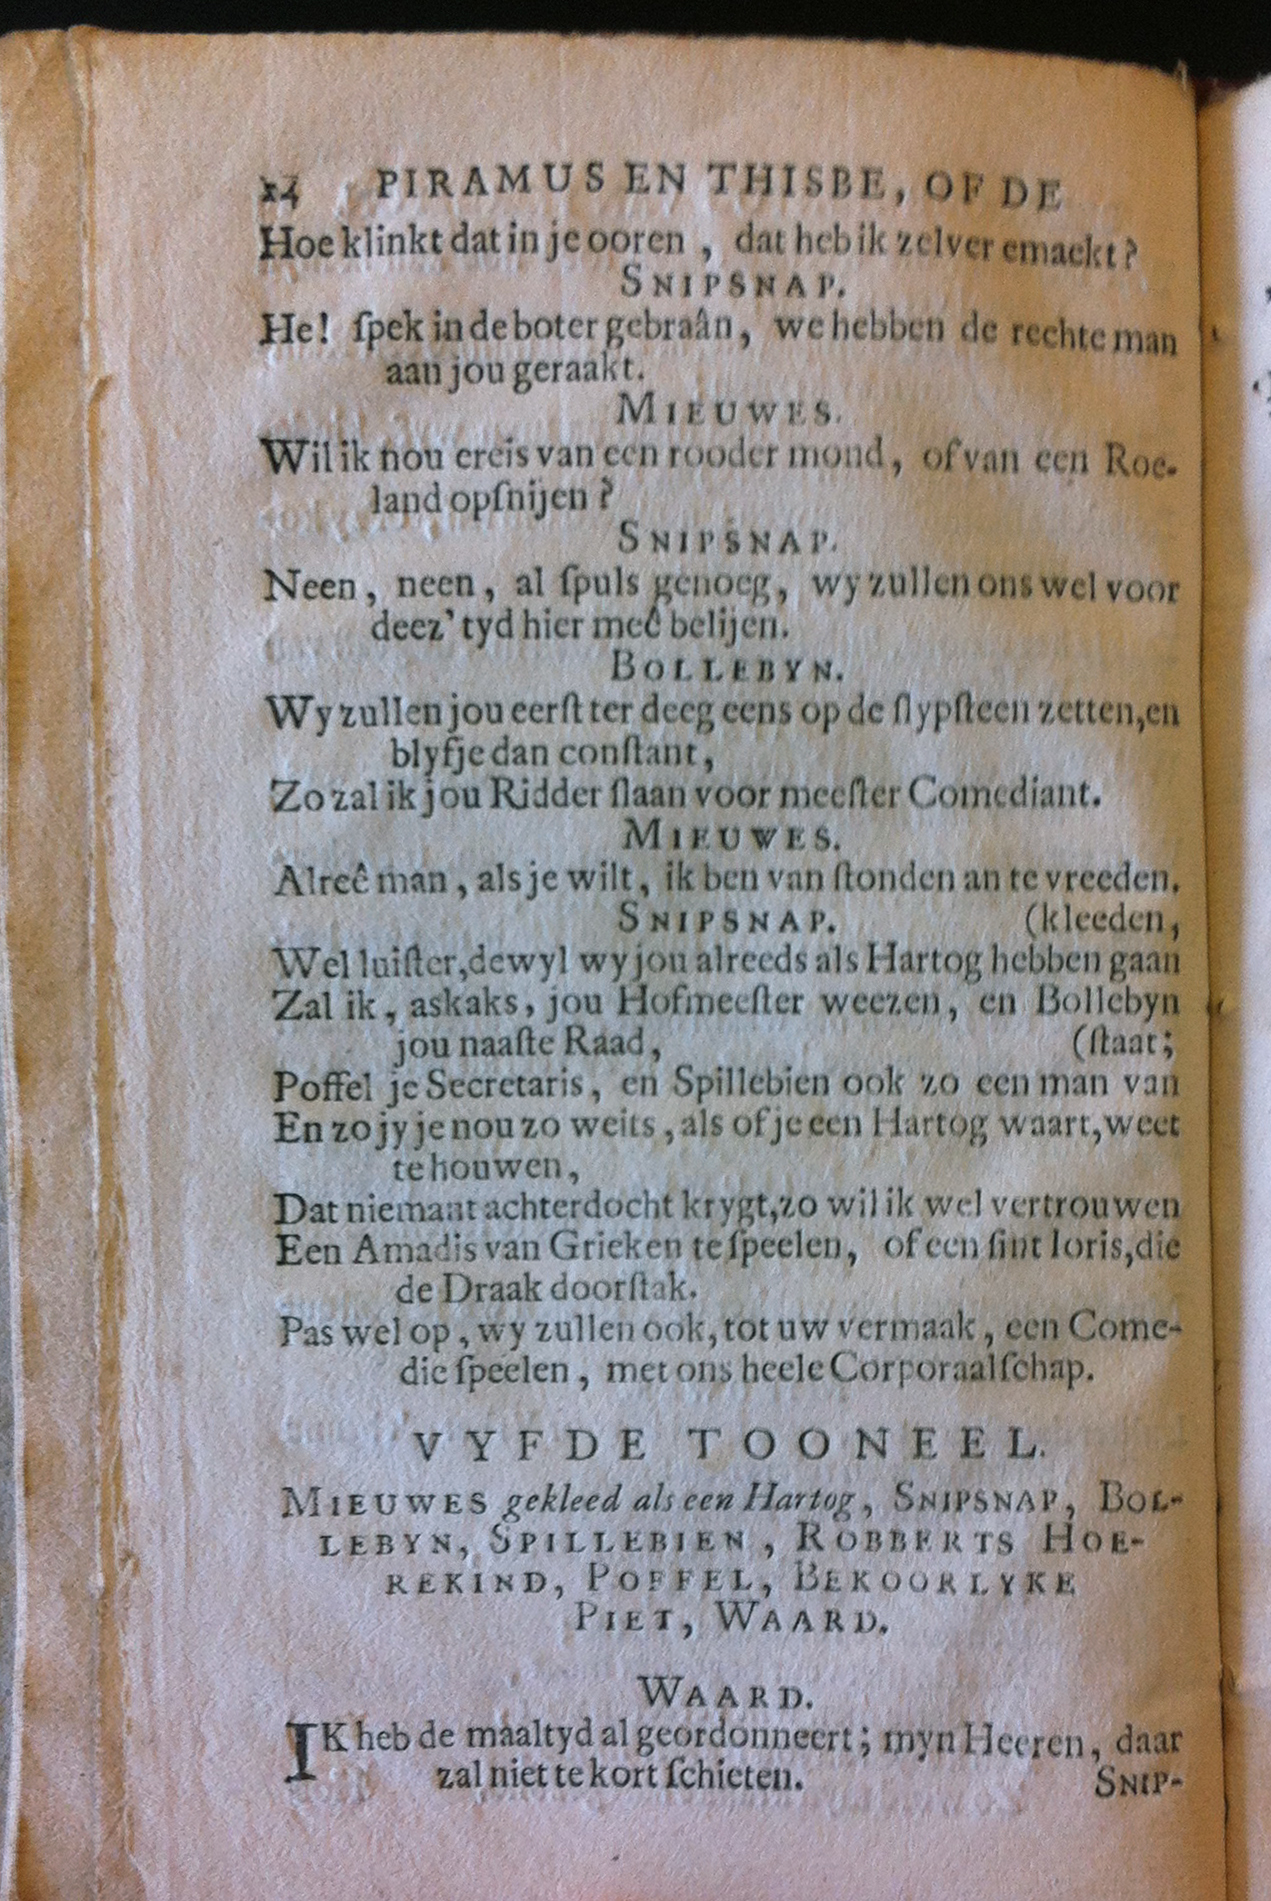 14 PIRAMUS EN THISBE, OF DE
Hoe klinkt dat in je ooren, dat heb ik zelver emaekt?
SNIPSNAP.
He! ſpek in de boter gebraân, we hebben de rechte man
aan jou geraakt.
MIEUWES.
Wil ik nou ereis van een rooder mond, of van een Roe-
land opſnijen?
SNIPSNAP.
Neen, neen, al ſpuls genoeg, wy zullen ons wel voor
deez' tyd hier meê belijen.
BOLLEBYN.
Wy zullen jou eerſt ter deeg eens op de ſlypſteen zetten, en
blyfje dan conſtant,
Zo zal ik jou Ridder ſlaan voor meeſter Comediant.
MIEUWES.
Alreê man, als je wilt, ik ben van ſtonden an te vreeden.
SNIPSNAP. (kleeden,
Wel luiſter, dewyl wy jou alreeds als Hartog hebben gaan
Zal ik, askaks, jou Hofmeeſter weezen, en Bollebyn
jou naaſte Raad, (ſtaat;
Poffel je Secretaris, en Spillebien ook zo een man van
En zo jy je nou zo weits, als of je een Hartog waart, weet
te houwen,
Dat niemant achterdocht krygt, zo wil ik wel vertrouwen
Een Amadis van Grieken te ſpeelen, of een ſint Joris, die
de Draak doorſtak.
Pas wel op, wy zullen ook, tot uw vermaak, een Come-
die ſpeelen, met ons heele Corporaalſchap.
VYFDE TOONEEL.
MIEUWES gekleed als een Hartog, SNIPSNAP, BOL-
LEBYN, SPILLEBIEN, ROBBERTS HOE-
REKIND, POFFEL, BEKOORLYKE
PIET, WAARD.
WAARD.
IK heb de maaltyd al geordonneert; myn Heeren, daar
zal niet te kort ſchieten. SNIP-